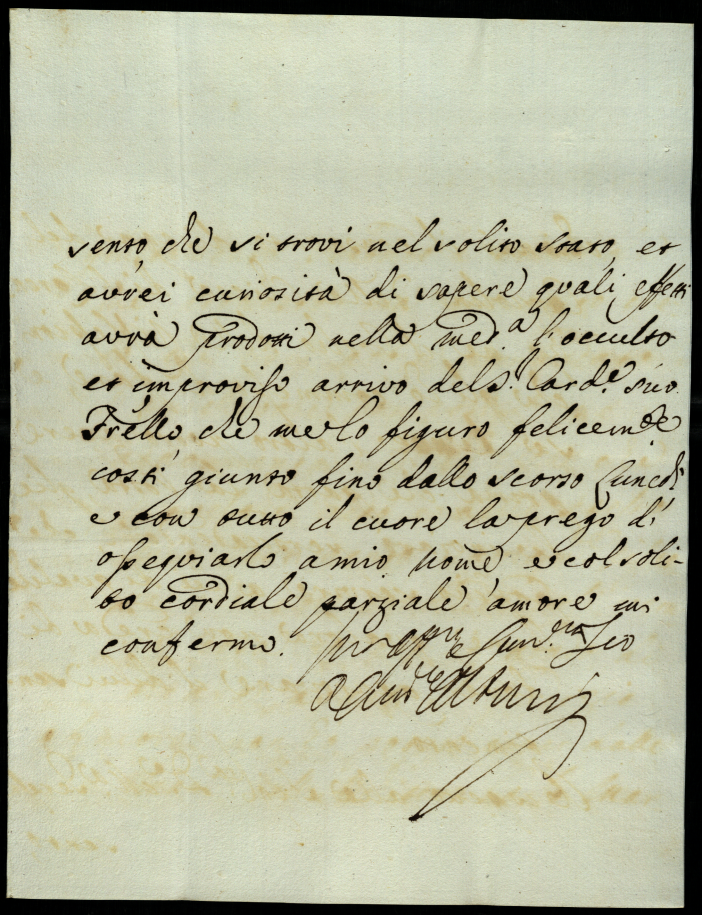 sento, che si trovi nel solito stato, et
avrei curiosità di sapere quali effetti
avrà prodotti nella med.a l'occulto
et improviso arrivo del S.r Card.e suo
Frello che me lo figuro felicem.te
costì giunto fino dallo scorso Lunedì
e con tutto il cuore la prego di
ossequiarlo a mio nome e col soli-
to cordiale parziale amore mi
confermo.